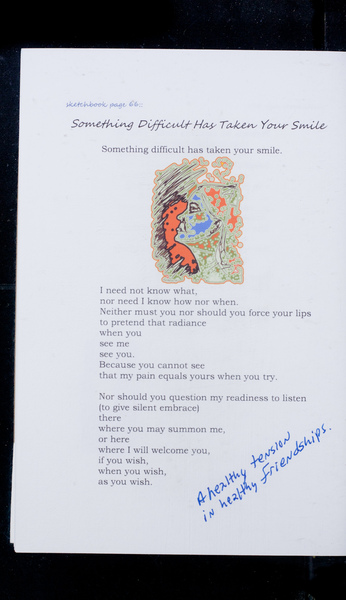 sketchbook page 66:
Something Difficult Has Taken Your Smile
Something difficult has taken your smile.
I need not know what,
nor need I know how nor when.
Neither must you nor should you force your lips
to pretend that radiance
when you
see me
see you.
Because you cannot see
that my pain equals yours when you try.
Nor should you question my readiness to listen
(to give silent embrace)
there
where you may summon me,
or here
where I will welcome you,
if you wish,
when you wish,
as you wish.
A healthy tension
in healthy friendships.